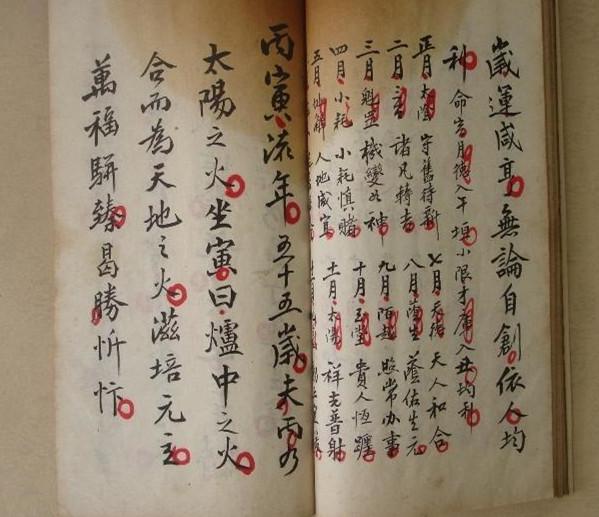 歲運咸亨無論自創依人均
利命宮月德入午垣小限才庫入丑均利
正月太陰守舊待新
七月天德天人和合
二月諸凡轉吉
八月蔭生蔭佑生元
三月魁罡機變如神
九月陌越照常办事
四月小耗小耗慎賭
十月玉堂貴人恆躔
五月人地咸宜
十一月太陽祥光普射
丙寅流年五十五歲未丙乃
太陽之火坐寅曰爐中之火
合而為天地之火滋培元主
萬福駢臻曷勝忻忭